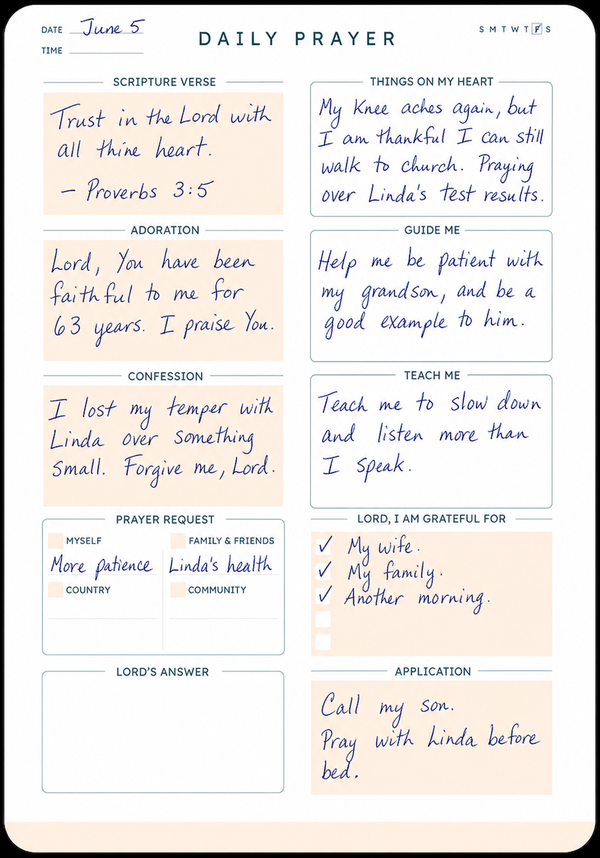 DATE June 5
TIME
DAILY PRAYER
S M T W T F S
SCRIPTURE VERSE
Trust in the Lord with
all thine heart.
– Proverbs 3:5
THINGS ON MY HEART
My Knee aches again, but
I am thankful I can still
walk to church. Praying
over Linda's test results.
ADORATION
Lord, You have been
faithful to me for
63 years. I praise You.
GUIDE ME
Help me be patient with
my grandson, and be a
good example to him.
CONFESSION
I lost my temper with
Linda over something
small. Forgive me, Lord.
TEACH ME
Teach me to slow down
and listen more than
I speak.
PRAYER REQUEST
MYSELF
More patience
FAMILY & FRIENDS
Linda's health
COUNTRY
COMMUNITY
LORD, I AM GRATEFUL FOR
✓ My wife.
✓ My family.
✓ Another morning.
LORD'S ANSWER
APPLICATION
Call my son.
Pray with Linda before
bed.